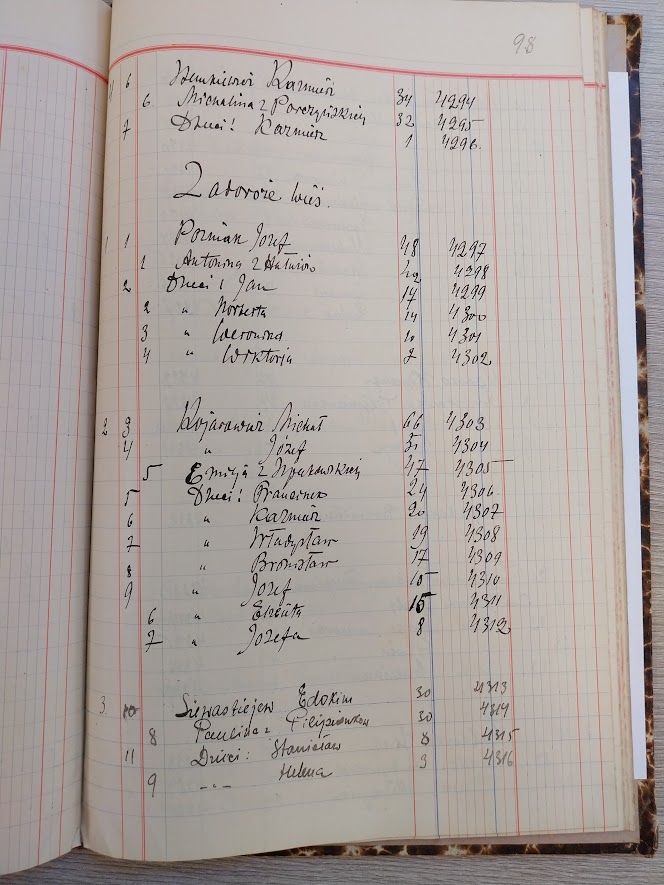 98
6 Kazmierz 34 4294
6 Michalina z Porczyńskich 32 4295
7 Dzieci: Kazmierz 1 4296.
Zadoroże wieś.
1 1 Pozniak Jozef 48 4297
1 Antonina z 42 4298
2 Dzieci: Jan 17 4299
2 " Norberta 14 4300
3 " Weronika 4301
4 " Wiktorja 7 4302
2 3 Michał 66 4303
4 " Józef 51 4304
5 Emilja z 47 4305
5 Dzieci: Franciszek 24 4306.
6 " Kazmierz 20 4307
7 " Władysław 19 4308
8 " Bronisław 17 4309
9 " Jozef 15 4310
6 " Elżbieta 15 4311
7 " Jozefa 8 4312
3. 10 Siewastiejew Edokim 30 4313
8 Paulina z 30 4314
11 Dzieci: Stanisław 8 4315
9 -"- Helena 3 4316